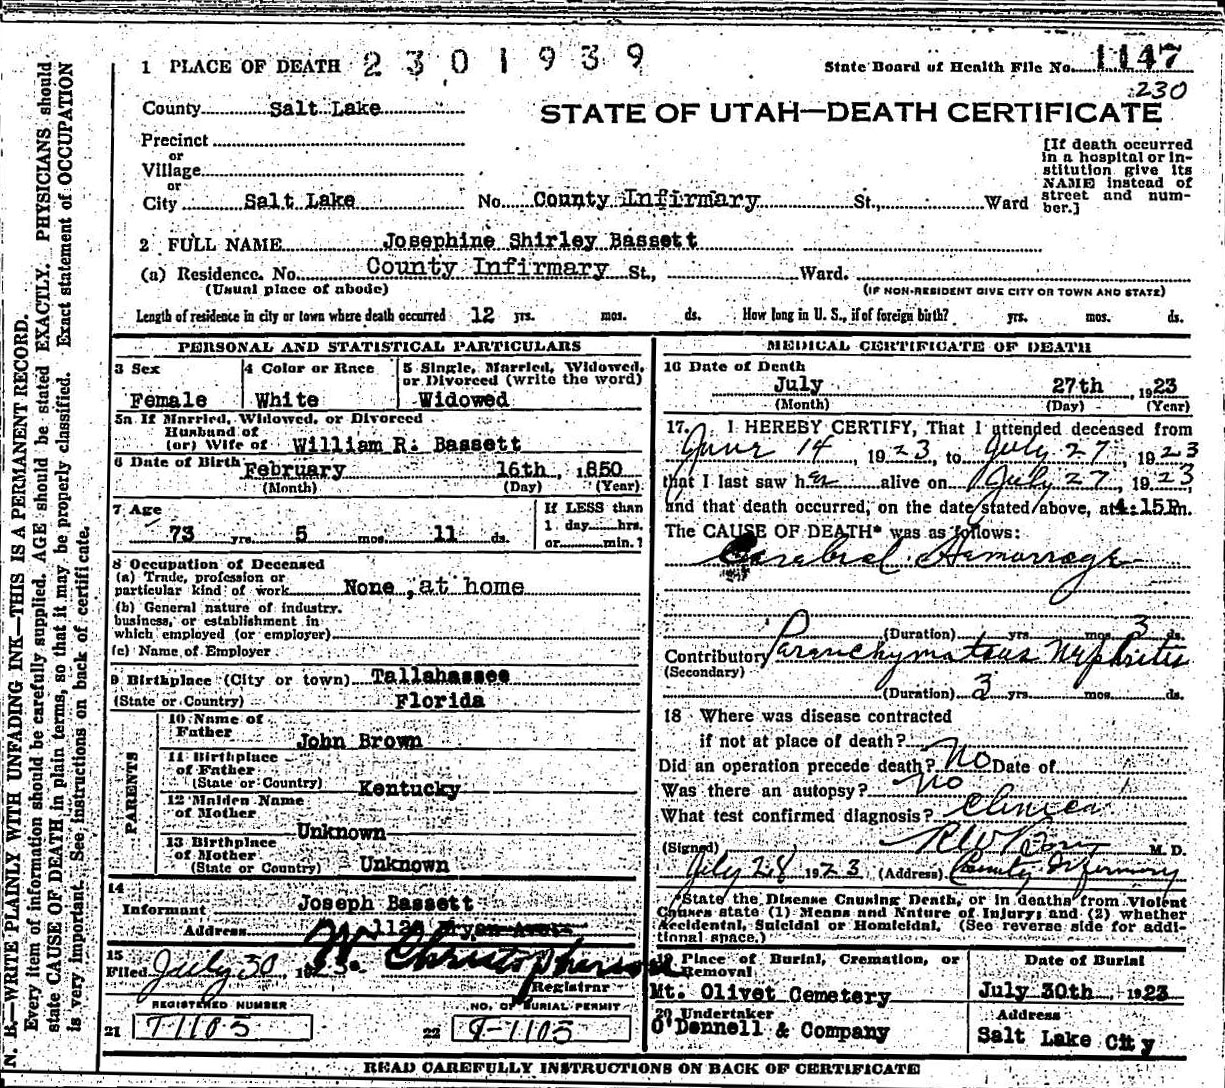 1 PLACE OF DEATH 2 3 0 1 9 3 9
State Board of Health File No. 1147
230
County Salt Lake
STATE OF UTAH—DEATH CERTIFICATE
Precinct
or
Village
or
City Salt Lake No. County Infirmary St., Ward
[If death occurred
in a hospital or in-
stitution give its
NAME instead of
street and num-
ber.]
2 FULL NAME Josephine Shirley Bassett
(a) Residence. No. County Infirmary St., Ward.
(Usual place of abode) (IF NON-RESIDENT GIVE CITY OR TOWN AND STATE)
Length of residence in city or town where death occurred 12 yrs. mos. ds. How long in U. S., if of foreign birth? yrs. mos. ds.
PERSONAL AND STATISTICAL PARTICULARS
3 Sex
Female
4 Color or Race
White
5 Single, Married, Widowed,
or Divorced (write the word)
Widowed
5a If Married, Widowed, or Divorced
Husband of
(or) Wife of William R. Bassett
6 Date of Birth February 16th, 1850
(Month) (Day) (Year)
7 Age
73 yrs. 5 mos. 11 ds.
If LESS than
1 day......hrs.
or.........min.?
8 Occupation of Deceased
(a) Trade, profession or
particular kind of work None, at home
(b) General nature of industry.
business, or establishment in
which employed (or employer)
(c) Name of Employer
9 Birthplace (City or town) Tallahassee
(State or Country) Florida
PARENTS
10 Name of
Father
John Brown
11 Birthplace
of Father
(State or Country) Kentucky
12 Maiden Name
of Mother
Unknown
13 Birthplace
of Mother
(State or Country) Unknown
14
Informant Joseph Bassett
Address 1126 Bryan
15
Filed July 30, 1923 W. Christopherson
Registrar
REGISTERED NUMBER
21 T1105
NO. OF BURIAL PERMIT
22 -1105
MEDICAL CERTIFICATE OF DEATH
16 Date of Death
July 27th, 1923
(Month) (Day) (Year)
17. I HEREBY CERTIFY, That I attended deceased from
June 14, 1923, to July 27, 1923
that I last saw her alive on July 27, 1923,
and that death occurred, on the date stated above, at 4:15P.m.
The CAUSE OF DEATH* was as follows:
Cerebral Hemorrage
(Duration) yrs. mos. 3 ds.
Contributory Parenchymatous Nephritis
(Secondary)
(Duration) 3 yrs. mos. ds.
18 Where was disease contracted
if not at place of death?
Did an operation precede death? No Date of
Was there an autopsy? No
What test confirmed diagnosis? Clinical
(Signed) M. D.
July 28 1923 (Address) County Infirmary
*State the Disease Causing Death, or in deaths from Violent
Causes state (1) Means and Nature of Injury; and (2) whether
Accidental, Suicidal or Homicidal. (See reverse side for addi-
tional space.)
19 Place of Burial, Cremation, or
Removal
Mt. Olivet Cemetery
Date of Burial
July 30th, 1923
20 Undertaker
O'Donnell & Company
Address
Salt Lake City
READ CAREFULLY INSTRUCTIONS ON BACK OF CERTIFICATE
N. B.—WRITE PLAINLY WITH UNFADING INK—THIS IS A PERMANENT RECORD.
Every item of information should be carefully supplied. AGE should be stated EXACTLY. PHYSICIANS should
state CAUSE OF DEATH in plain terms, so that it may be properly classified. Exact statement of OCCUPATION
is very important. See instructions on back of certificate.